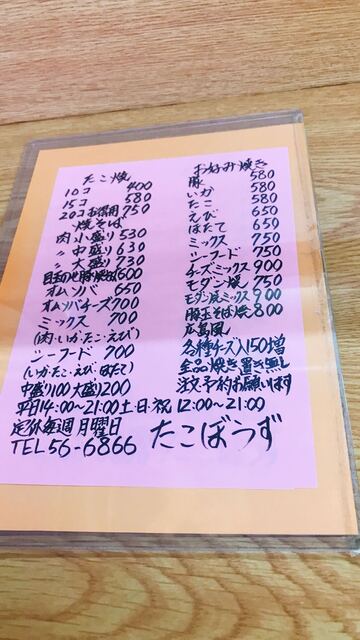 たこ焼
10コ 400
15コ 580
20コお得用 750
焼そば
肉小盛り 530
〃中盛り 630
〃大盛 730
目玉のせ豚焼そば 600
オムソバ 650
オムソバチーズ 700
ミックス 700
(肉・いか・たこ・えび)
シーフード 700
(いか・たこ・えび・ほたて)
中盛り100 大盛り200
平日14:00〜21:00 土・日・祝 12:00〜21:00
定休毎週月曜日
TEL 56-6866
お好み焼き
豚 580
いか 580
たこ 580
えび 650
ほたて 650
ミックス 750
シーフード 750
チーズミックス 900
モダン焼 750
モダン焼ミックス 900
豚玉そば焼 800
広島風
各種チーズ入150増
全品焼き置き無し
注文予約お願います
たこぼうず